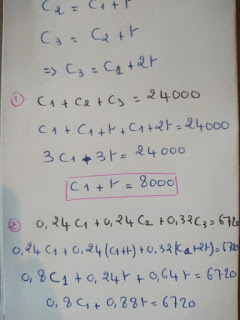 C2 = C1 + r
C3 = C2 + r
=> C3 = C1 + 2r
① C1 + C2 + C3 = 24000
C1 + C1 + r + C1 + 2r = 24000
3C1 + 3r = 24000
C1 + r = 8000
② 0,24C1 + 0,24C2 + 0,32C3 = 6720
0,24C1 + 0,24(C1+r) + 0,32(C1+2r) = 6720
0,8C1 + 0,24r + 0,64r = 6720
0,8C1 + 0,88r = 6720